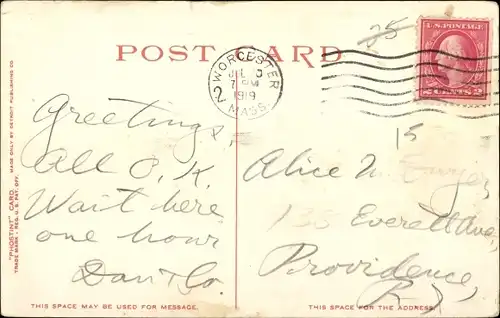 25
POST CARD
WORCESTER
JUL 3
7 PM
1919
2
MASS.
U.S. POSTAGE
2 CENTS 2
"PHOSTINT" CARD. MADE ONLY BY DETROIT PUBLISHING CO.
TRADE MARK - REG. U.S. PAT. OFF.
Greetings,
All O.K.
Wait here
one hour
Dan & Co.
15
Alice M.
135 Everett Ave,
Providence,
R.I.
THIS SPACE MAY BE USED FOR MESSAGE.
THIS SPACE IS FOR THE ADDRESS.